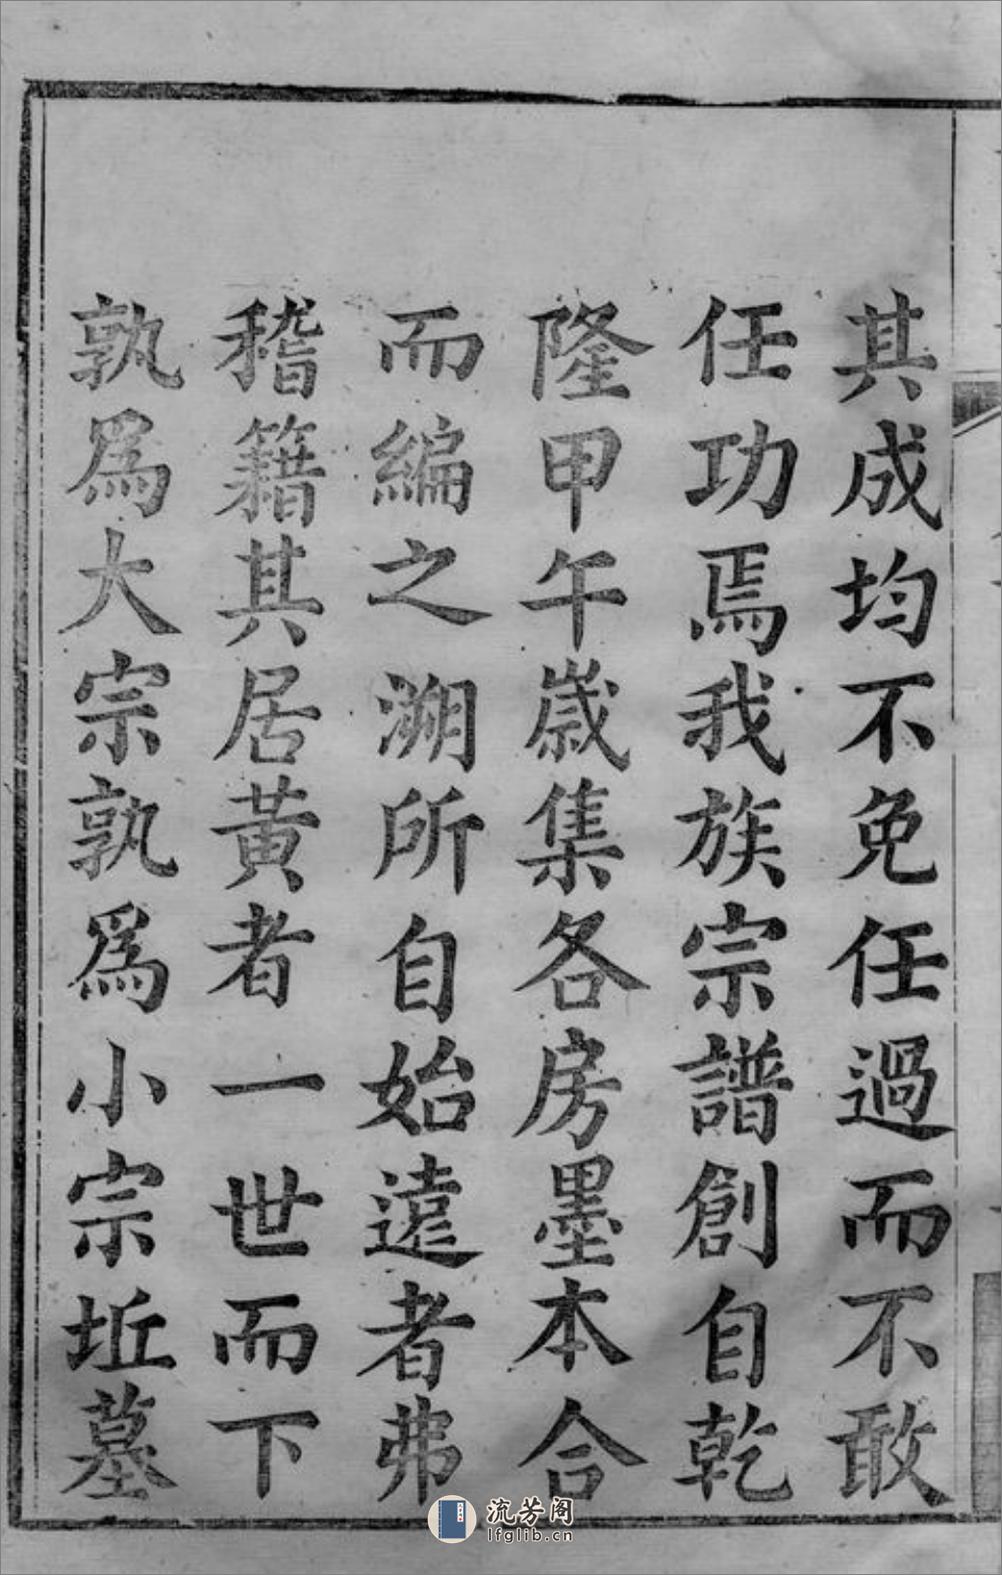 其成均不免任過而不敢
任功焉我族宗譜創自乾
隆甲午歲集各房墨本合
而編之溯所自始遠者弗
稽籍其居黃者一世而下
孰爲大宗孰爲小宗坵墓
流芳阁
lfglib.cn